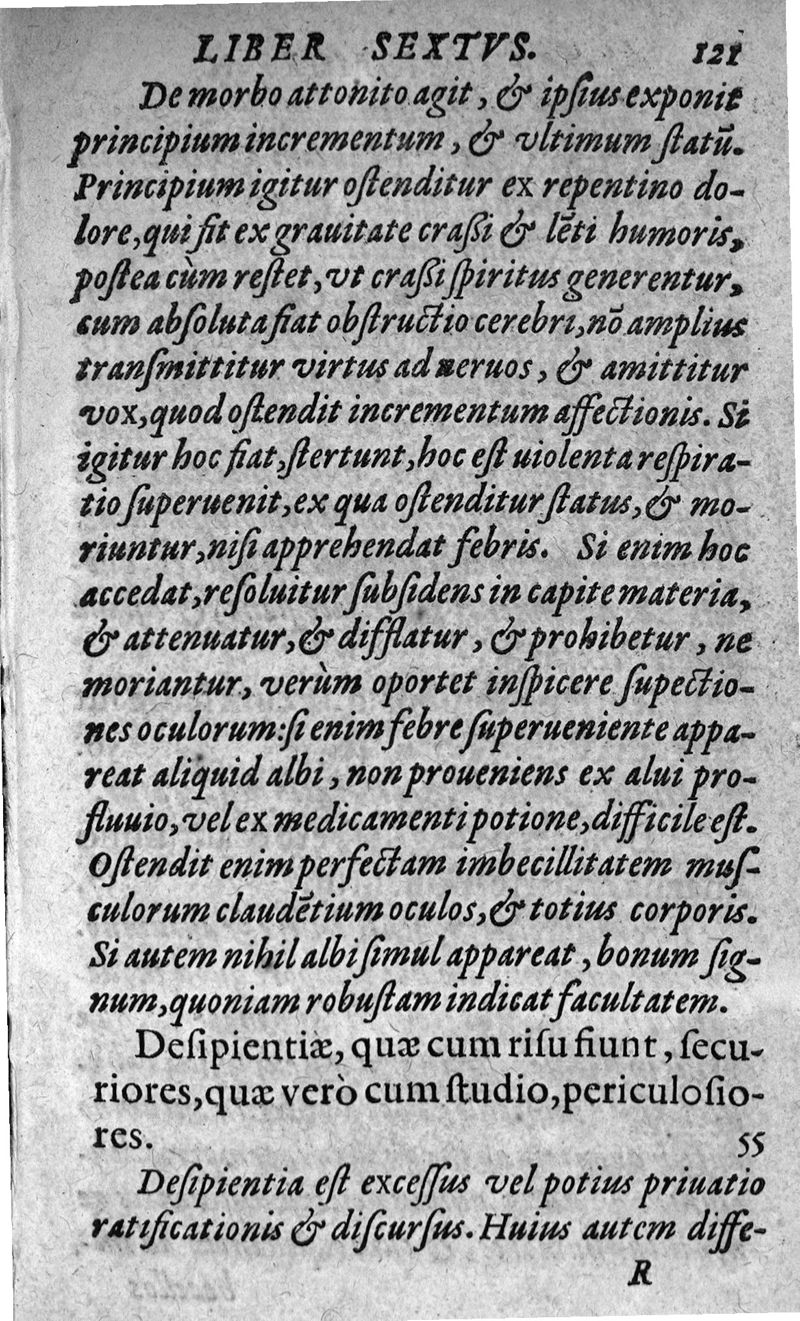 LIBER SEXTVS. 121
De morbo attonito agit, & ipſius exponit
principium incrementum, & vltimum ſtatū.
Principium igitur oſtenditur ex repentino do-
lore, qui fit ex grauitate craßi & lēti humoris,
poſtea cùm reſtet, vt craßi ſpiritus generentur,
cum abſoluta fiat obſtructio cerebri, nō amplius
tranſmittitur virtus ad neruos, & amittitur
vox, quod oſtendit incrementum affectionis. Si
igitur hoc fiat, ſtertunt, hoc eſt uiolenta reſpira-
tio ſuperuenit, ex qua oſtenditur ſtatus, & mo-
riuntur, niſi apprehendat febris. Si enim hoc
accedat, reſoluitur ſubſidens in capite materia,
& attenuatur, & difflatur, & prohibetur, ne
moriantur, verùm oportet inſpicere ſupectio-
nes oculorum: ſi enim febre ſuperueniente appa-
reat aliquid albi, non proueniens ex alui pro-
fluuio, vel ex medicamenti potione, difficile eſt.
Oſtendit enim perfectam imbecillitatem muſ-
culorum claudētium oculos, & totius corporis.
Si autem nihil albi ſimul appareat, bonum ſig-
num, quoniam robuſtam indicat facultatem.
Deſipientiæ, quæ cum riſu fiunt, ſecu-
riores, quæ verò cum ſtudio, periculoſio-
res. 55
Deſipientia eſt exceſſus vel potius priuatio
ratificationis & diſcurſus. Huius autem diffe-
R